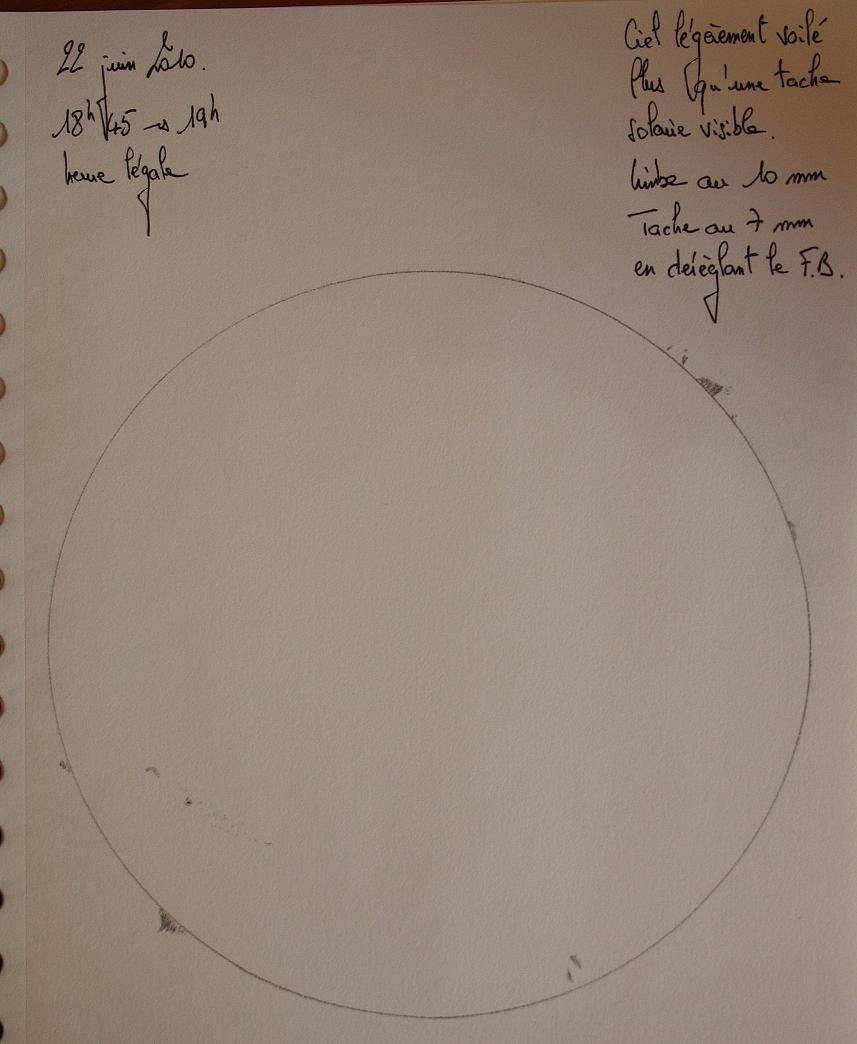 22 juin 2010.
18h45 → 19h
heure légale
Ciel légèrement voilé
Plus qu'une tache
solaire visible.
Limbe au 10 mm
Tache au 7 mm
en déréglant le F.B.